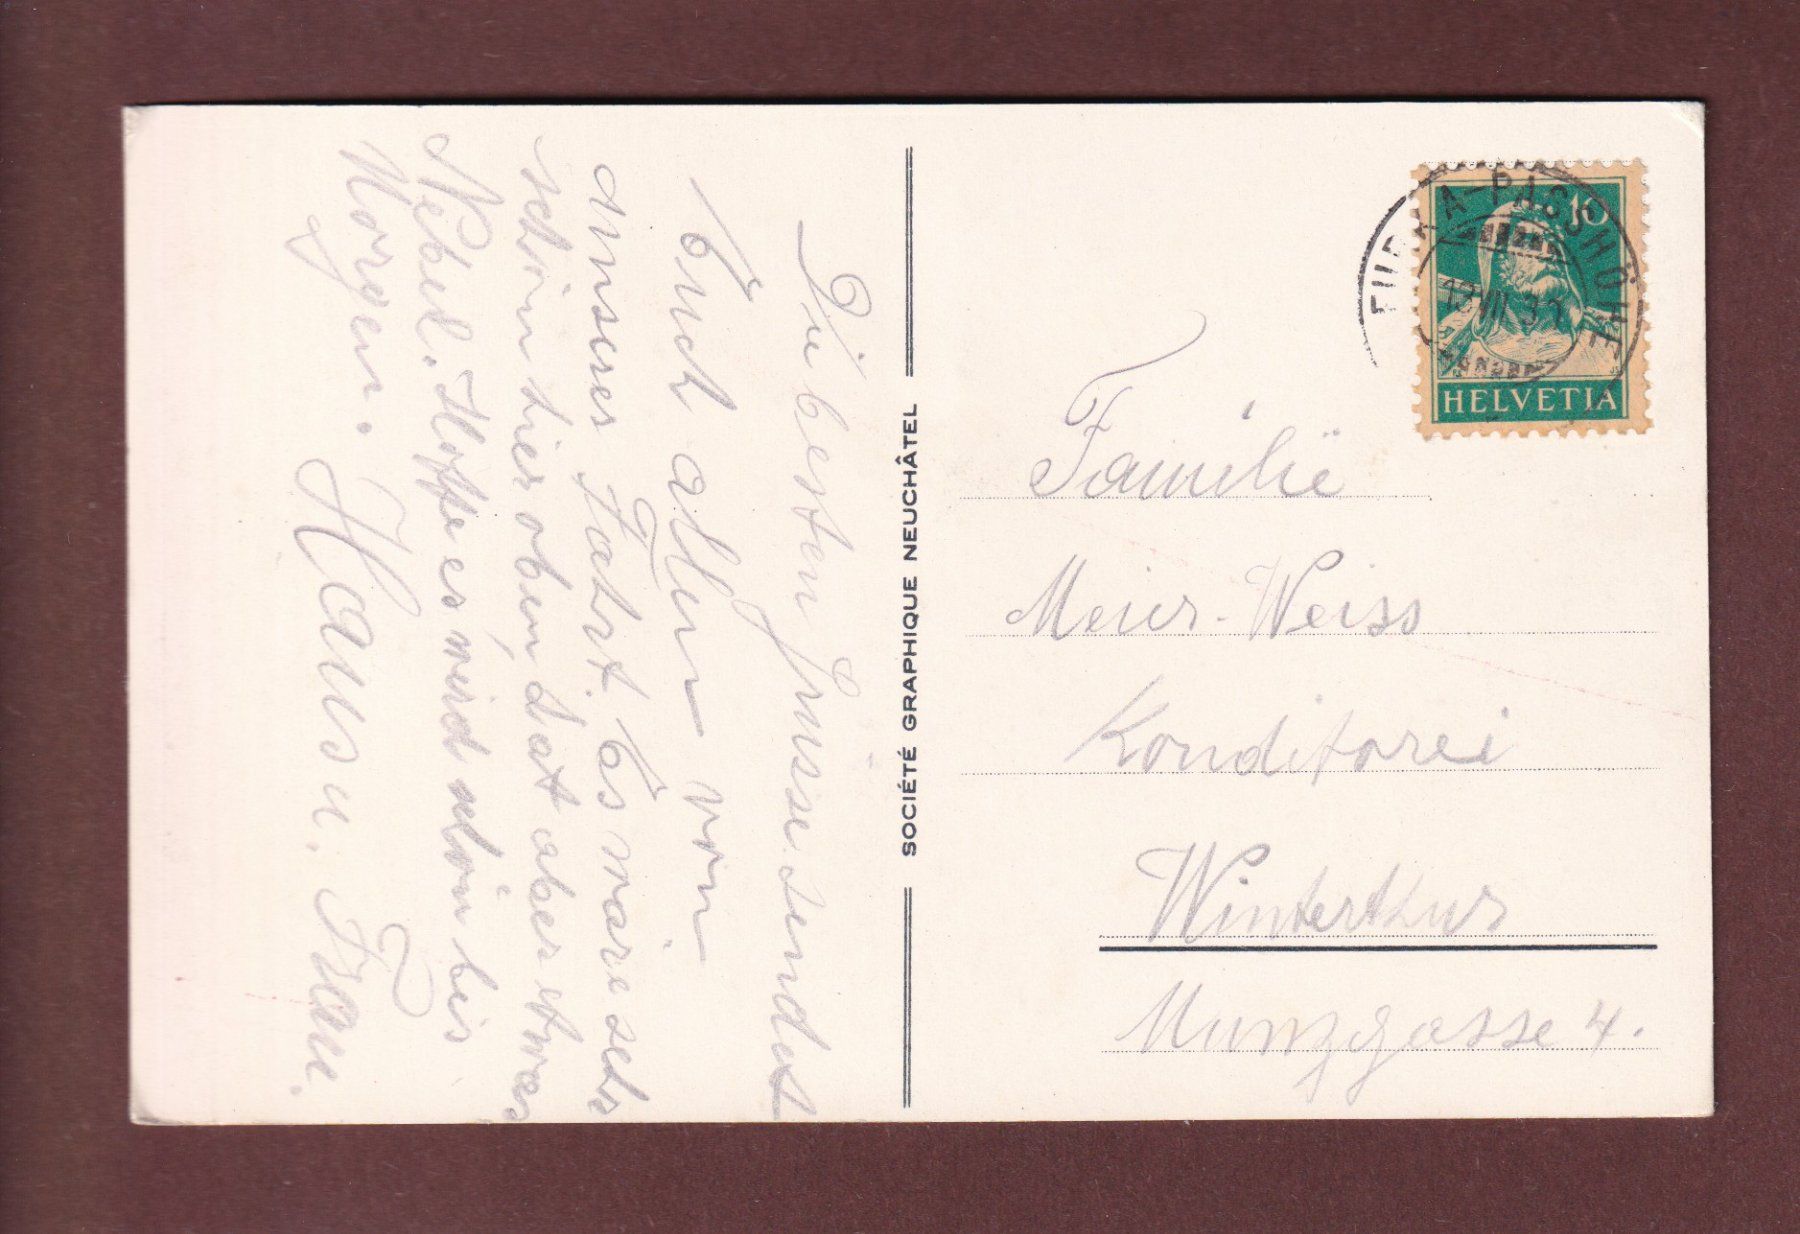 Die besten Grüsse sendet
Euch allen von
unserer Fahrt. Es wäre sehr
schön hier oben, hat aber etwas
Nebel. Hoffe es wird schön bis
Morgen.
Hans u. Frau.
SOCIÉTÉ GRAPHIQUE NEUCHÂTEL
FURKA-PASSHÖHE
VII.3
10
HELVETIA
Familie
Meier-Weiss
Konditorei
Winterthur
Munzgasse 4.